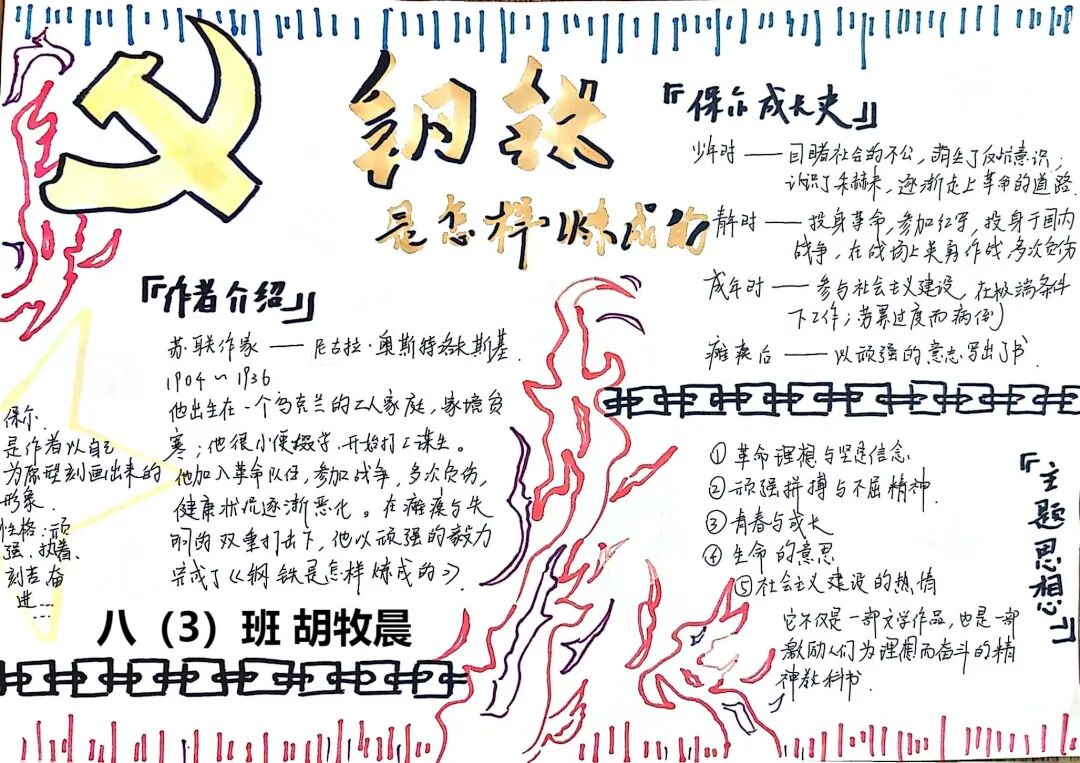 钢铁
是怎样炼成的
『作者介绍』
苏联作家——尼古拉·奥斯特洛夫斯基.
1904~1936
他出生在一个乌克兰的工人家庭，家境贫
寒；他很小便辍学.开始打工谋生。
他加入革命队伍，参加战争，多次负伤，
健康状况逐渐恶化。在瘫痪与失
明的双重打击下，他以顽强的毅力
完成了《钢铁是怎样炼成的》.
保尔.
是作者以自己
为原型刻画出来的
形象.
性格：顽
强、执着、
刻苦奋
进....
...
八（3）班 胡牧晨
『保尔成长史』
少年时——目睹社会的不公，萌生了反抗意识；
认识了朱赫来，逐渐走上革命的道路.
青年时——投身革命，参加红军，投身于国内
战争，在战场上英勇作战，多次负伤
成年时——参与社会主义建设，在极端条件
下工作；劳累过度而病倒
瘫痪后——以顽强的意志写出了书.
『主题思想』
①革命理想与坚定信念
②顽强拼搏与不屈精神.
③青春与成长
④生命的意思
⑤社会主义建设的热情
它不仅是一部文学作品，也是一部
激励人们为理想而奋斗的精
神教科书.